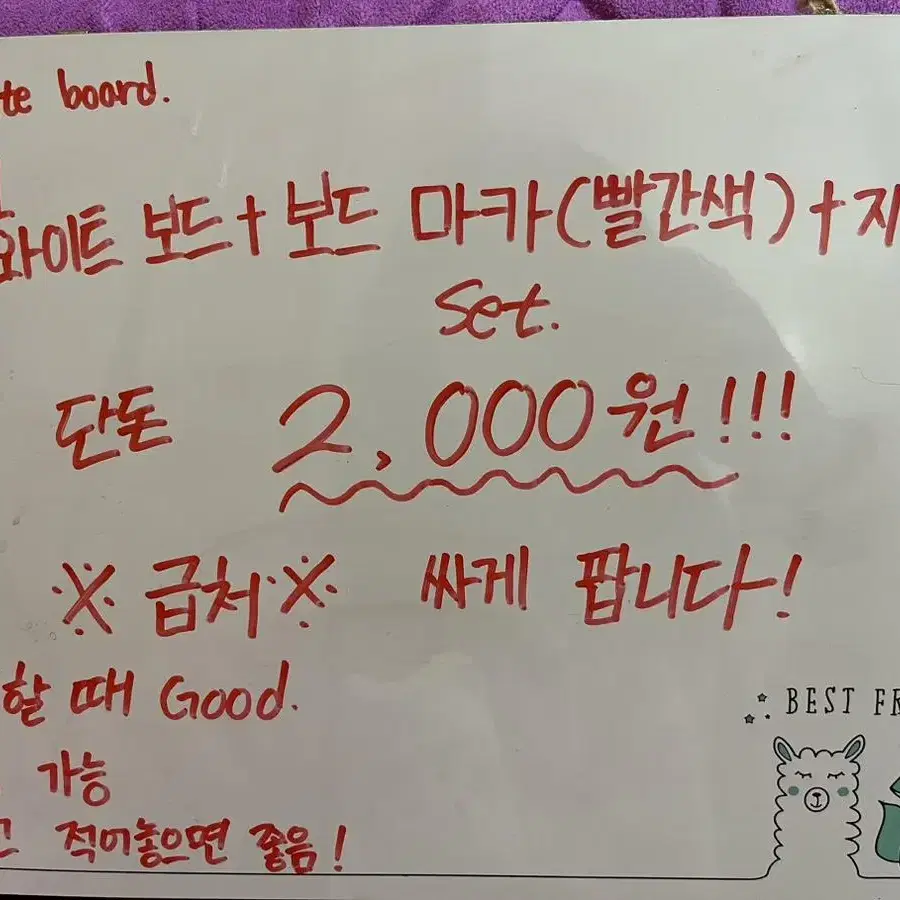 te board.
와이트 보드 + 보드 마카(빨간색) + 지
Set.
단돈 2,000원!!!
※급처※ 싸게 팝니다!
할 때 Good.
가능
적어놓으면 좋음!
BEST FR